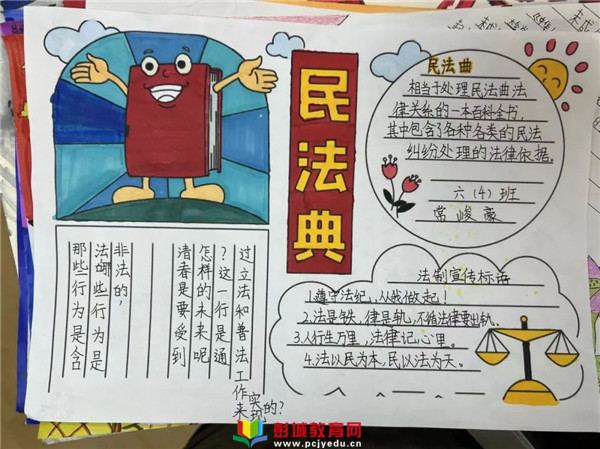 民法典
民法曲
相当于处理民法曲法
律关系的一本百科全书,
其中包含了各种各类的民法
纠纷处理的法律依据。
六(4)班
常峻豪
那些行为是含
法哪些行为是
非法的,
清者是要受到
怎样的未来呢
?这一行是通
过立法和普法工作来实现的?
法制宣传标语
1.遵守法纪,从我做起!
2.法是铁、律是轨,不偏法律要出轨。
3.人行生万里,法律记心里。
4.法以民为本,民以法为天。
彭城教育网
www.pcjyedu.cn